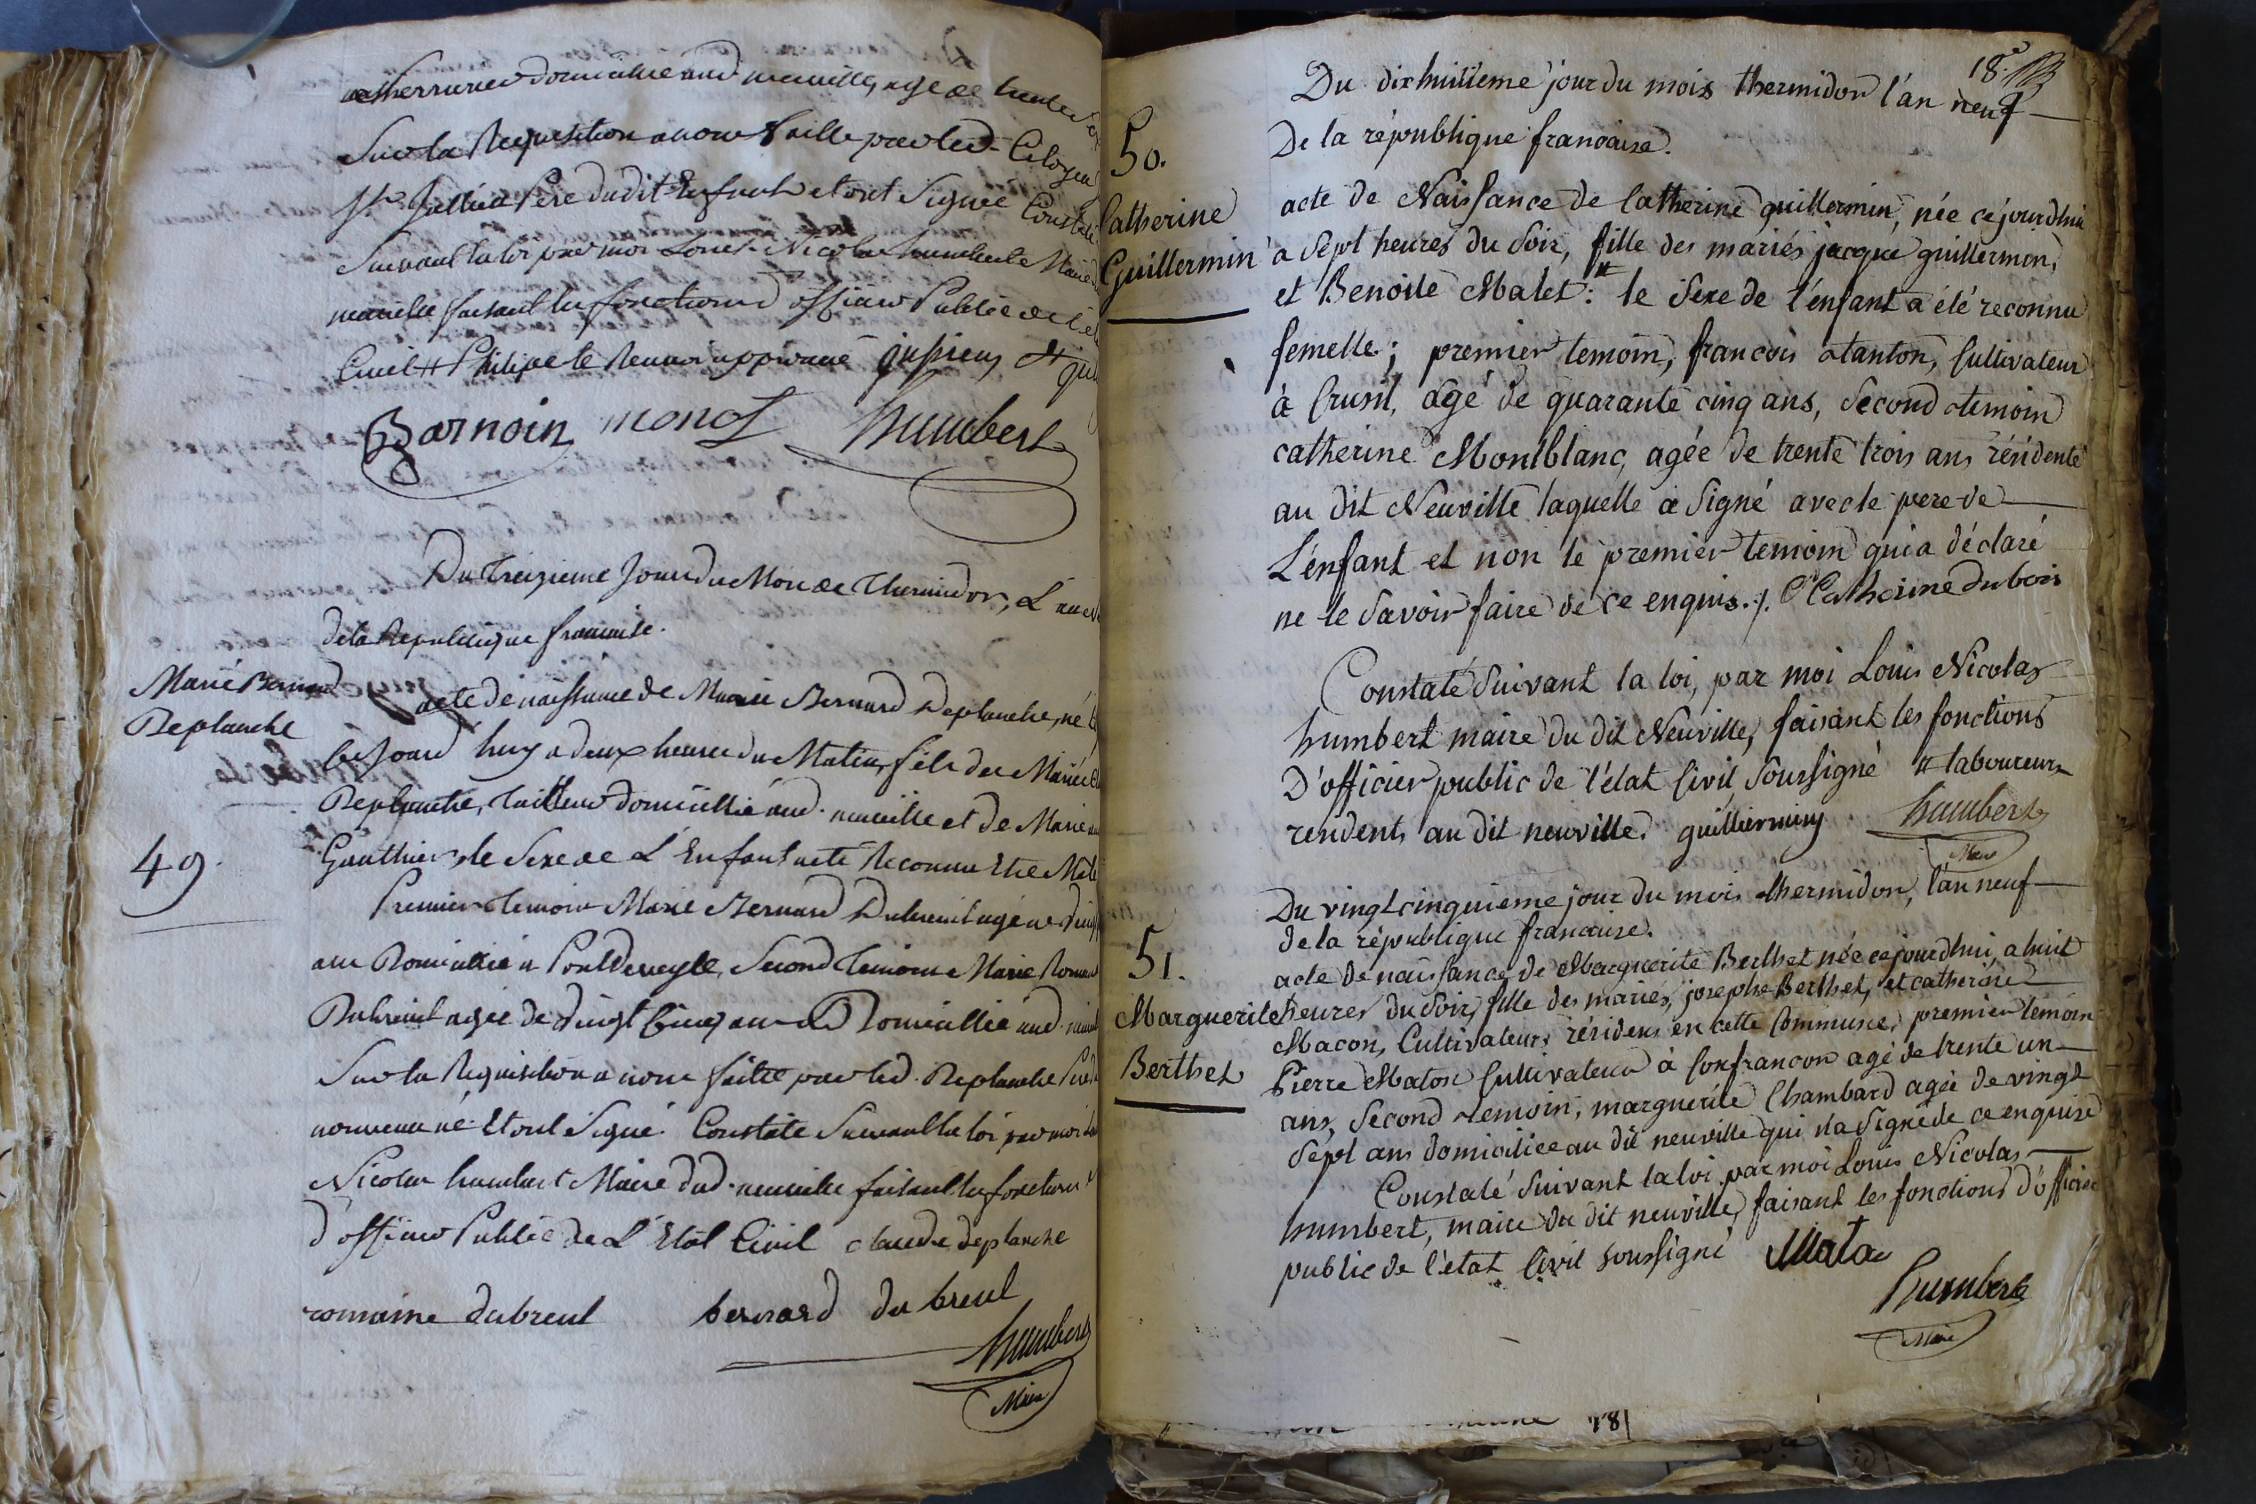 domicilié aud neuville, age de trente
Sur la Requisition a nous faitte par led. Citoyen
Père dudit Enfant et ont Signée Constaté
Suivant la loi par moi Louis Nicolas humbert Maire
neuville faisant les fonctions d officier Public de l'é
Civil # Philipe le Renvoi approuvé
Barnoin monof humbert
Du Treizieme Jour du Mois de Thermidor, L'an
de la Republique francaise.
Marie Bernard
Deplanche
49.
acte de naissance de Marie Bernard Deplanche, né
ce Jourd huy a deux heures du Matin, fils des Mariés
Deplanche, Tailleur domicillié aud. neuville et de Marie
Gauthier, le Sexe de L'Enfant a eté Reconnu Etre Mâle
Premier Temoin Marie Bernard Dubreuil agé de vingt
ans Domicillié a Pontdeveyle, Second Temoin Marie Romaine
Dubreuil agée de vingt Cinq ans Domicilliée aud.
Sur la Requisition a nous faitte par led. Deplanche Père
nouveau né Et ont Signé. Constaté Suivant la loi par moi
Nicolas humbert Maire dud. neuville faisant les fonctions
d'officier Public de L'Etat Civil claude deplanche
romaine dubreul bernard du breul
humbert
Maire
18e
Du dixhuitieme jour du mois thermidor l'an neuf
De la république francaise.
50.
Catherine
Guillermin
acte de Naissance de Catherine guillermin, née cejourd'hui
à Sept heures du Soir, fille des mariés jacque guillermin,
et Benoite Malet: # le Sexe de l'énfant a été reconnu
femelle; premier temoin, francois tanton, Cultivateur
à Crusil, agé de quarante cinq ans, Second temoin
catherine Montblanc, agée de trente trois ans résidente
au dit Neuville laquelle a Signé avec le pere de
L'énfant et non le premier temoin qui a déclaré
ne le Savoir faire de ce enquis./. Catherine dubois
Constaté Suivant la loi, par moi Louis Nicolas
humbert maire du dit Neuville, faisant les fonctions
D'officier public de l'état Civil Soussigné # laboureurs
residents au dit neuville. guilliermin humbert
Maire
Du vingt cinquieme jour du mois thermidor, l'an neuf
de la république francaise.
51.
Marguerite
Berthet
acte de naissance de Marguerite Berthet née cejourdhui, a huit
heures du Soir, fille des mariés, josephe Berthet, et catherine
Macon, Cultivateurs résidens en cette Commune, premier temoin
Pierre Maton Cultivateur à Confrancon agé de trente un
ans, Second temoin, marguerite Chambard agée de vingt
Sept ans domiciliee au dit neuville qui na Signé de ce enquise
Constaté Suivant la loi par moi Louis Nicolas
humbert, maire du dit neuville, faisant les fonctions d'officier
public de l'état Civil soussigné
humbert
Maire